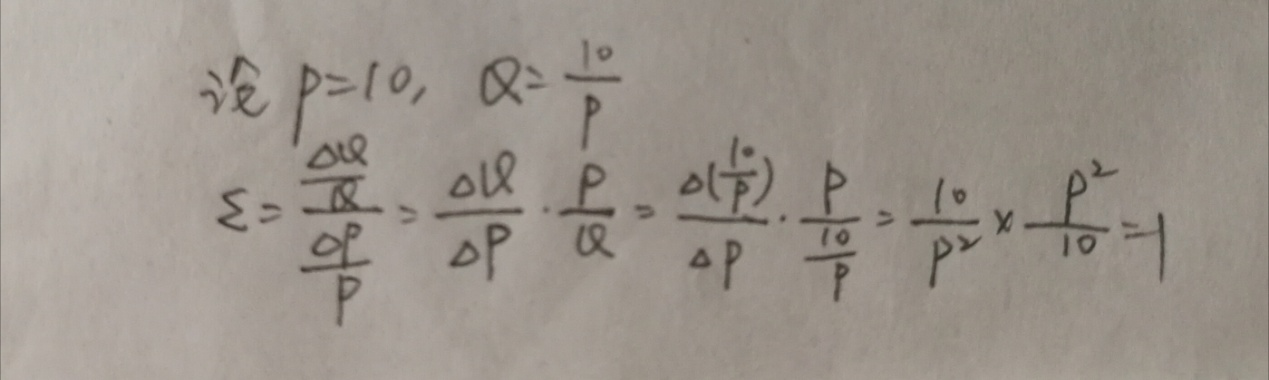 设 p=10, Q=10/p
Σ=(ΔQ/Q)/(ΔP/P)=ΔQ/ΔP·P/Q=Δ(10/P)/ΔP·P/(10/P)=10/P²×P²/10=1